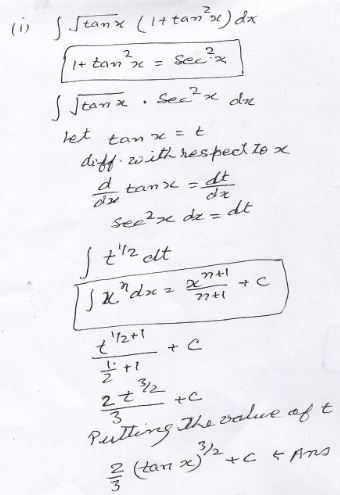 (i) ∫ √tan x (1 + tan²x) dx
1 + tan²x = Sec²x
∫ √tan x . Sec²x dx
Let tan x = t
diff. with respect to x
d/dx tan x = dt/dx
Sec²x dx = dt
∫ t^1/2 dt
∫ x^n dx = x^n+1/n+1 + C
t^1/2+1 / 1/2 + 1 + C
2 t^3/2 / 3 + C
Putting the value of t
2/3 (tan x)^3/2 + C ← Ans